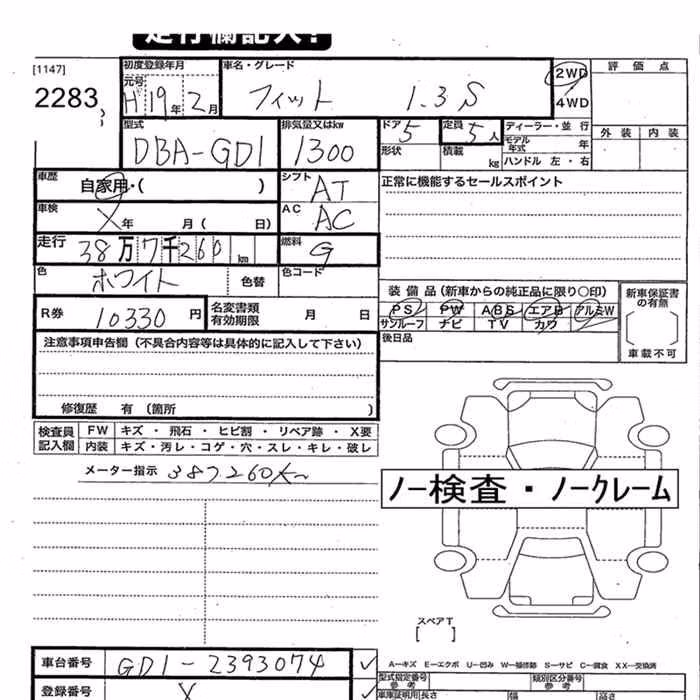 走行欄記入!
[1147]
2283
初度登録年月
元号
H 19 年 2 月
車名・グレード
フィット 1.3 S
2WD
4WD
評価点
外装 内装
型式
DBA-GD1
排気量又はkw
1300
ドア 5
形状
定員 5 人
積載 kg
ディーラー・並行
モデル年式 年
ハンドル 左・右
車歴
自家用・( )
シフト AT
正常に機能するセールスポイント
車検
X 年 月 ( 日)
AC AC
走行
38 万 7 千 260 km
燃料 G
色
ホワイト
色替
色コード
R券 10330 円
名変書類
有効期限 月 日
装備品 (新車からの純正品に限り○印)
PS PW ABS エアB アルミW
サンルーフ ナビ TV カワ
後日品
新車保証書
の有無
[ ]
車載不可
注意事項申告欄 (不具合内容等は具体的に記入して下さい)
修復歴 有 (箇所 )
検査員
記入欄
FW キズ・飛石・ヒビ割・リペア跡・X要
内装 キズ・汚レ・コゲ・穴・スレ・キレ・破レ
メーター指示 387260K
ノー検査・ノークレーム
スペアT
[ ]
A-キズ E-エクボ U-凹み W-補修跡 S-サビ C-腐食 XX-交換済
車台番号 GD1-2393074
登録番号 X
型式指定番号
参考
類別区分番号
参考
車庫証明用 長さ 幅 高さ